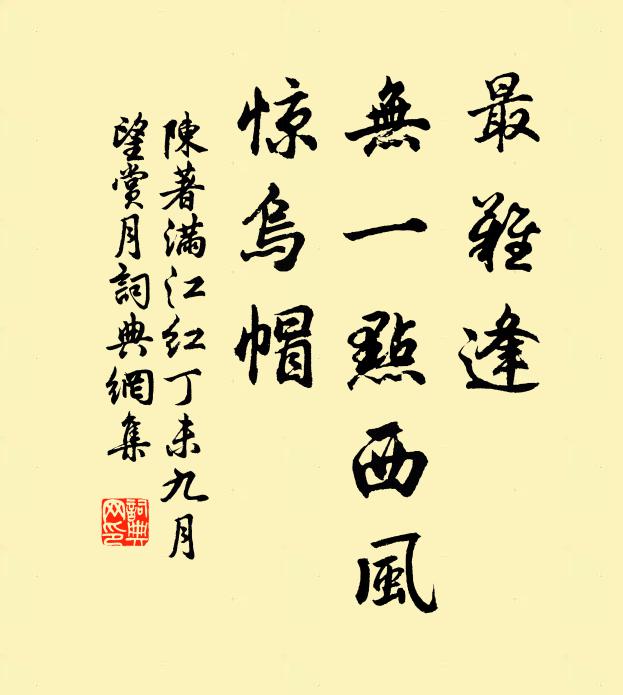 最難逢
無一點西風
惊烏帽
陳著滿江红丁未九月
望賞月詞典網集
詞典网印